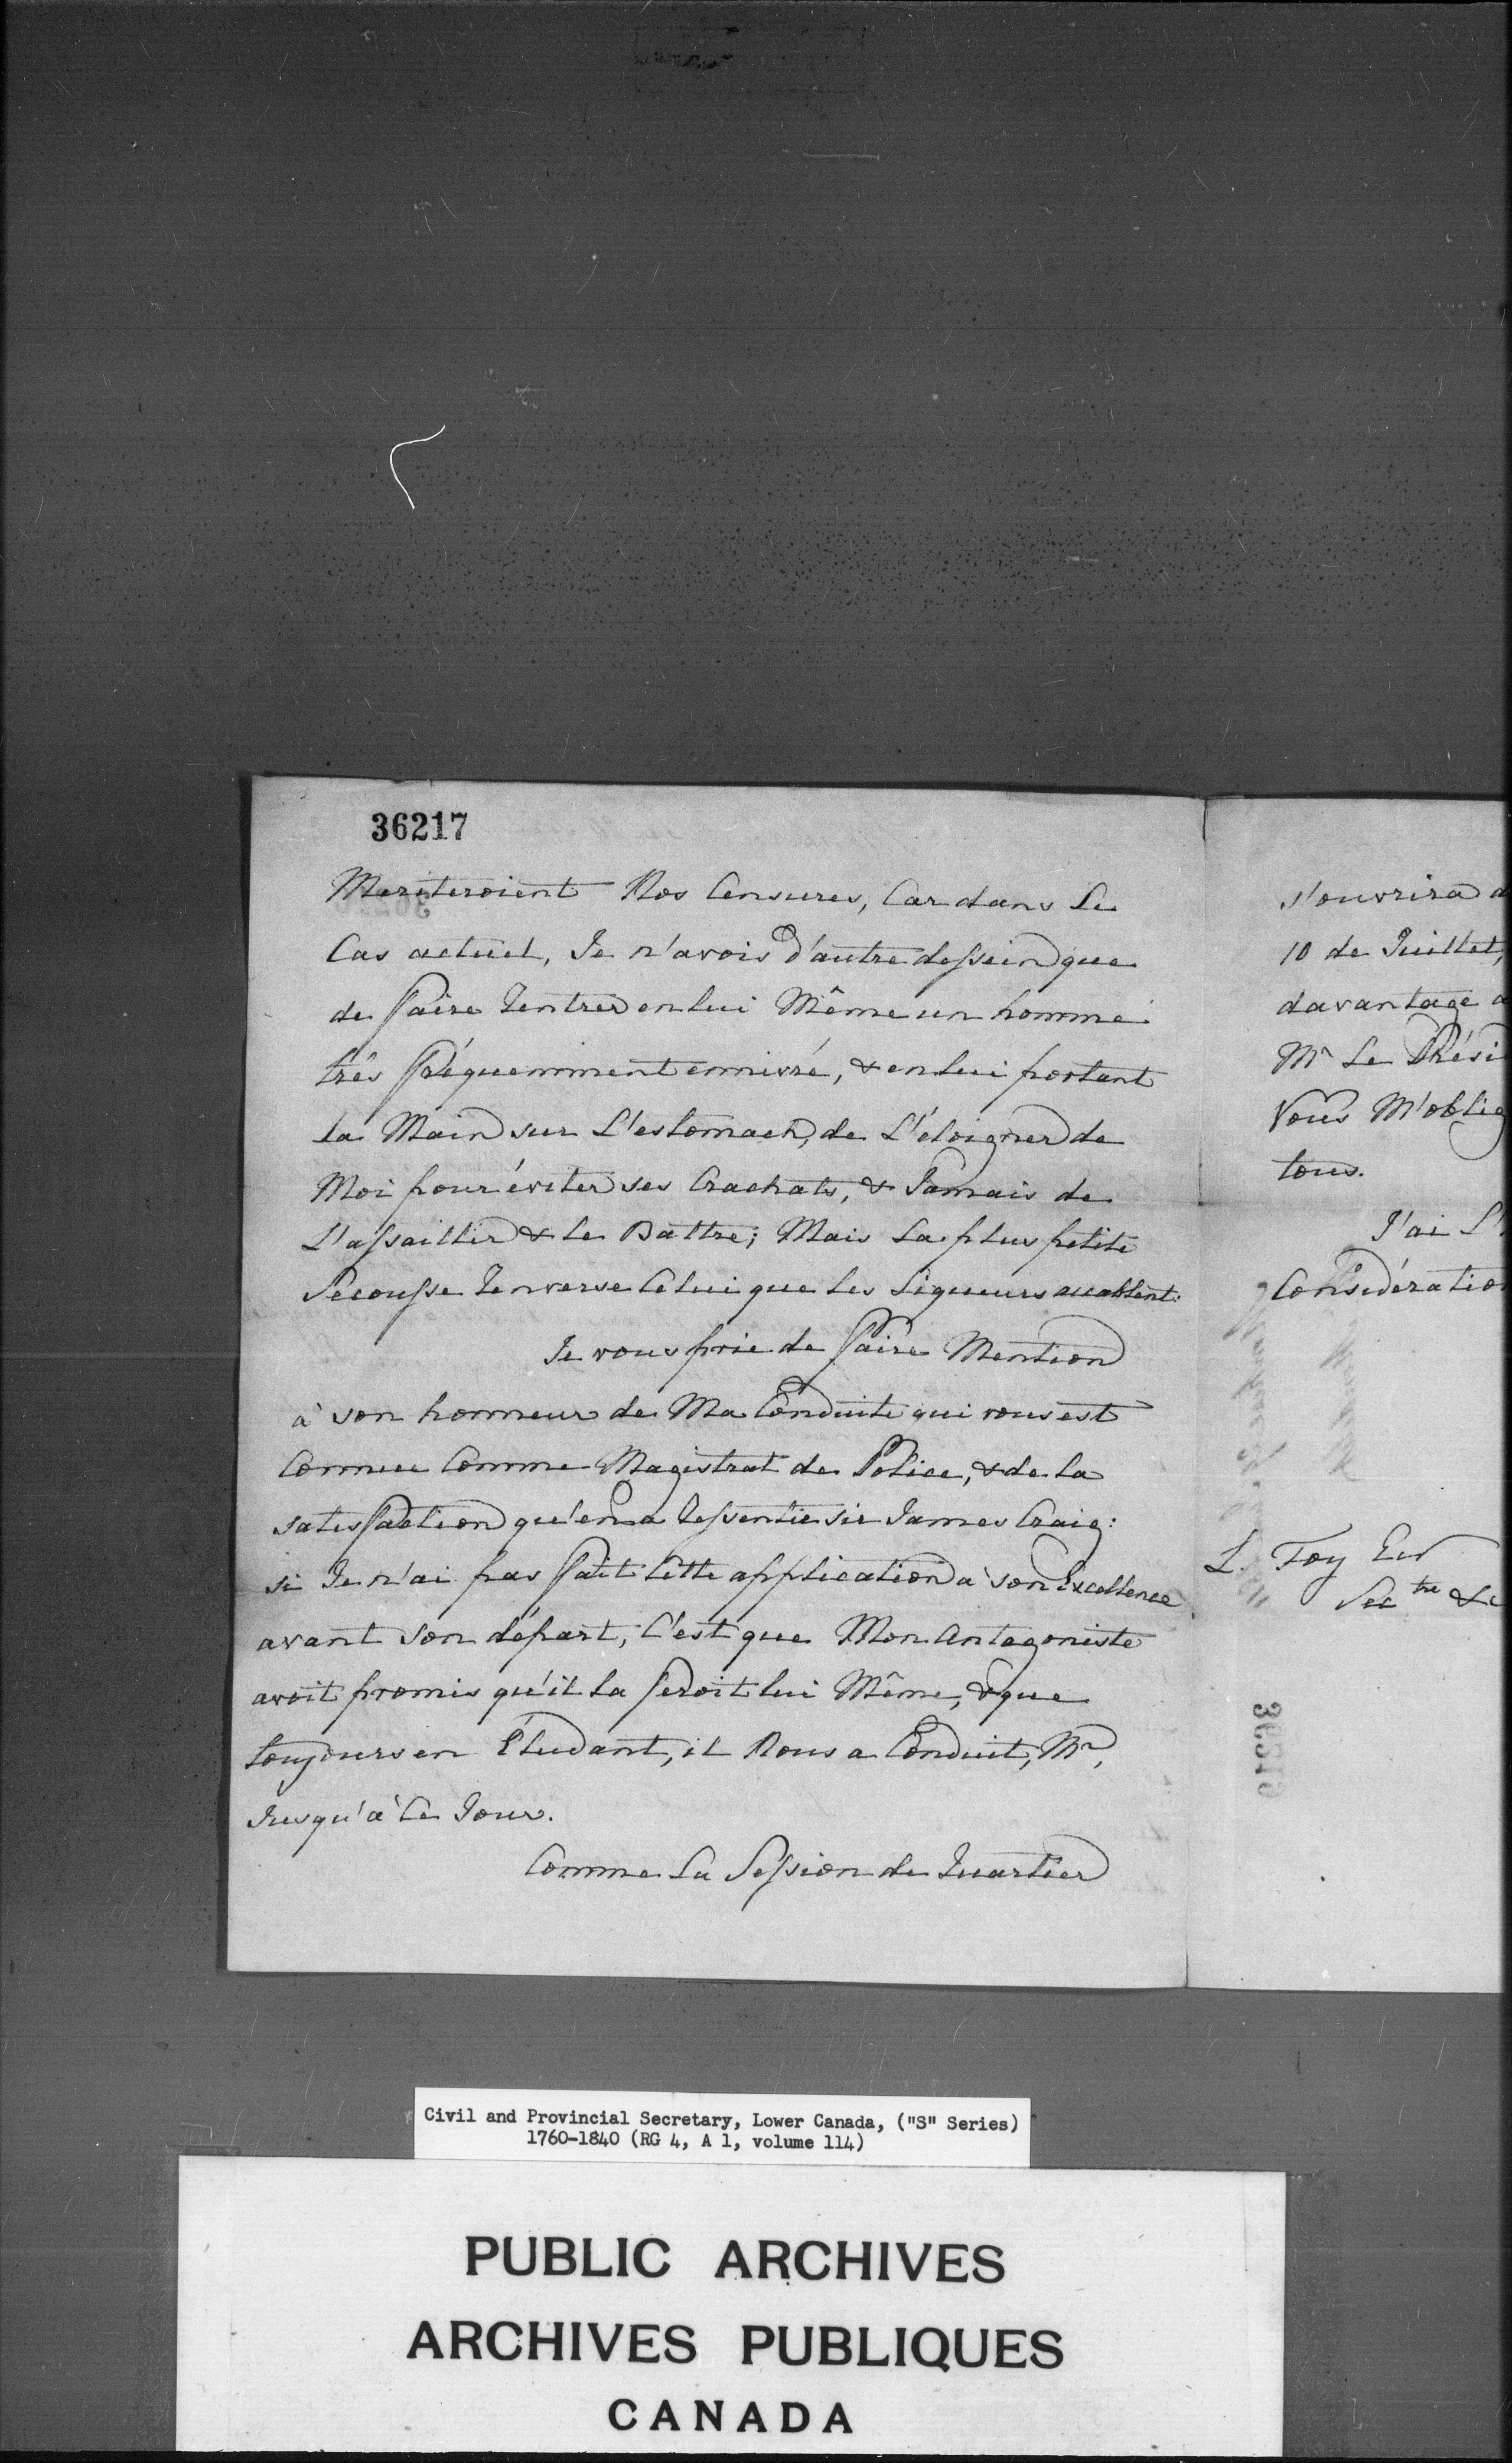 36217
Meriteroient Nos Censures, Car dans Le
Cas actuel, Je n'avois d'autre dessein que
de faire Rentrer en lui Même un homme
très fréquemment ennivré, & en lui portant
la Main sur L'estomach, de L'éloigner de
Moi pour éviter ses Crachats, & Jamais de
L'assaillir & le Battre; Mais La plus petite
Secousse Renverse Celui que les Liqueurs accablent.
Je vous prie de faire Mention
à son honneur de Ma Conduite qui vous est
Connue Comme Magistrat de Police, & de la
satisfaction qu'en a Ressentie sir James Craig:
si Je n'ai pas fait Cette application à son Excellence
avant son départ, C'est que Mon Antagoniste
avoit promis qu'il la feroit lui Même, & que
toujours en Éludant, il Nous a Conduit, Mr,
Jusqu'à Ce Jour.
Comme La Session de Quartier
s'ouvrira
10 de Juillet,
davantage
Mr Le Prési
Vous M'oblig
tous.
J'ai L'
Considération
L. Foy Ecr
Sectre &c
Civil and Provincial Secretary, Lower Canada, ("S" Series)
1760-1840 (RG 4, A 1, volume 114)
PUBLIC ARCHIVES
ARCHIVES PUBLIQUES
CANADA